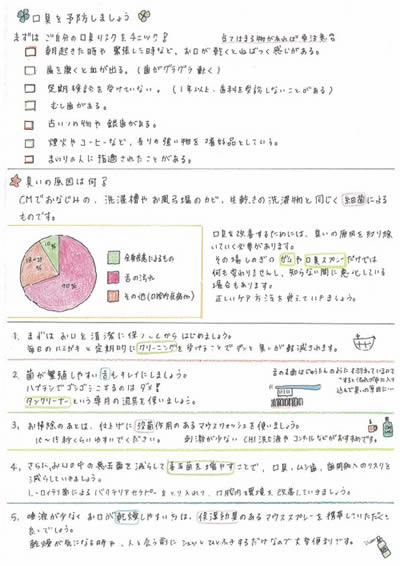 口臭を予防しましょう
まずは ご自分の口臭リスクをチェック！ 当てはまる物があれば要注意
朝起きた時や 緊張した時など、お口が乾くと ねばつく感じがある。
歯を磨くと血が出る。（歯がグラグラ動く）
定期検診を受けていない。（1年以上、歯科を受診しないことがある）
むし歯がある。
古いつめ物や 銀歯がある。
煙草やコーヒーなど、香りの強い物を嗜好品としている。
まわりの人に指摘されたことがある。
臭いの原因は何？
CMでおなじみの、洗濯槽やお風呂場のカビ、生乾きの洗濯物と同じく 細菌による
ものです。
10%
70%
全身疾患によるもの
舌の汚れ
その他（口腔内疾病他）
口臭を改善するためには、臭いの原因を取り除
いていく必要があります。
その場しのぎの ガムや口臭スプレーだけでは
何も変わりませんし、知らない間に悪化している
場合もあります。
正しいケア方法を覚えていきましょう。
1. まずは お口を清潔に保つことからはじめましょう。
毎日のハミガキと定期的にクリーニングを受けることで ずっと臭いが軽減されます。
2. 菌が繁殖しやすい舌もキレイにしましょう。
ハブラシでゴシゴシこするのはダメ！
タンクリーナーという専用の道具を使いましょう。
3. お掃除のあとは、仕上げに殺菌作用のあるマウスウォッシュを使いましょう。
刺激が少ない CHX洗口液や コンクールなどがおすすめです。
4. さらに、お口の中の悪玉菌を減らして善玉菌を増やすことで、口臭、ムシ歯、歯周病へのリスクを
減らしていきましょう。
L-ロイテリ菌による バクテリアセラピーをとり入れて、口腔内環境を改善していきましょう。
5. 唾液が少なく お口が乾燥しやすい方は、保湿効果のあるマウススプレーを携帯していただくと
良いでしょう。
乾燥が気になる時や、人と会う前に シュッとひとふきするだけなので 大変便利です。